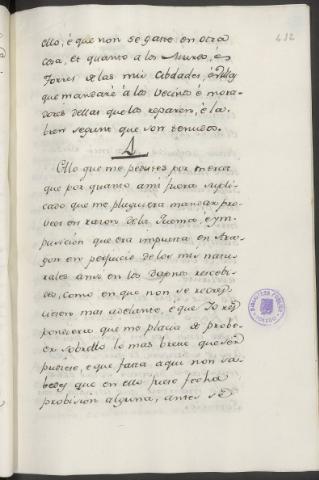 ello, é que non se gaste en otra
cosa, et quanto a los Muros, é
Torres de las mis Cibdades, é Villas
que mandaré á los Vecinos é mora-
dores dellas que los reparen, é la-
bren segunt que son tenudos.
A lo que me pedistes por merced
que por quanto a mi fuera supli-
cado que me pluguiera mandar pro-
veer en razon de la Quema, é ym-
pusicion que era impuesta en Ara-
gon en perjuicio de los mis natu-
rales ansi en los Dapnos rescebi-
dos, como en que non se rescep-
ciesen mas adelante, é que Yo res-
pondiera que me placia de probe-
er sobrello lo mas breve que ser
pudiese, é que fasta aqui non sa-
bedes que en ello fuese fecha
probision alguna, antes se
412